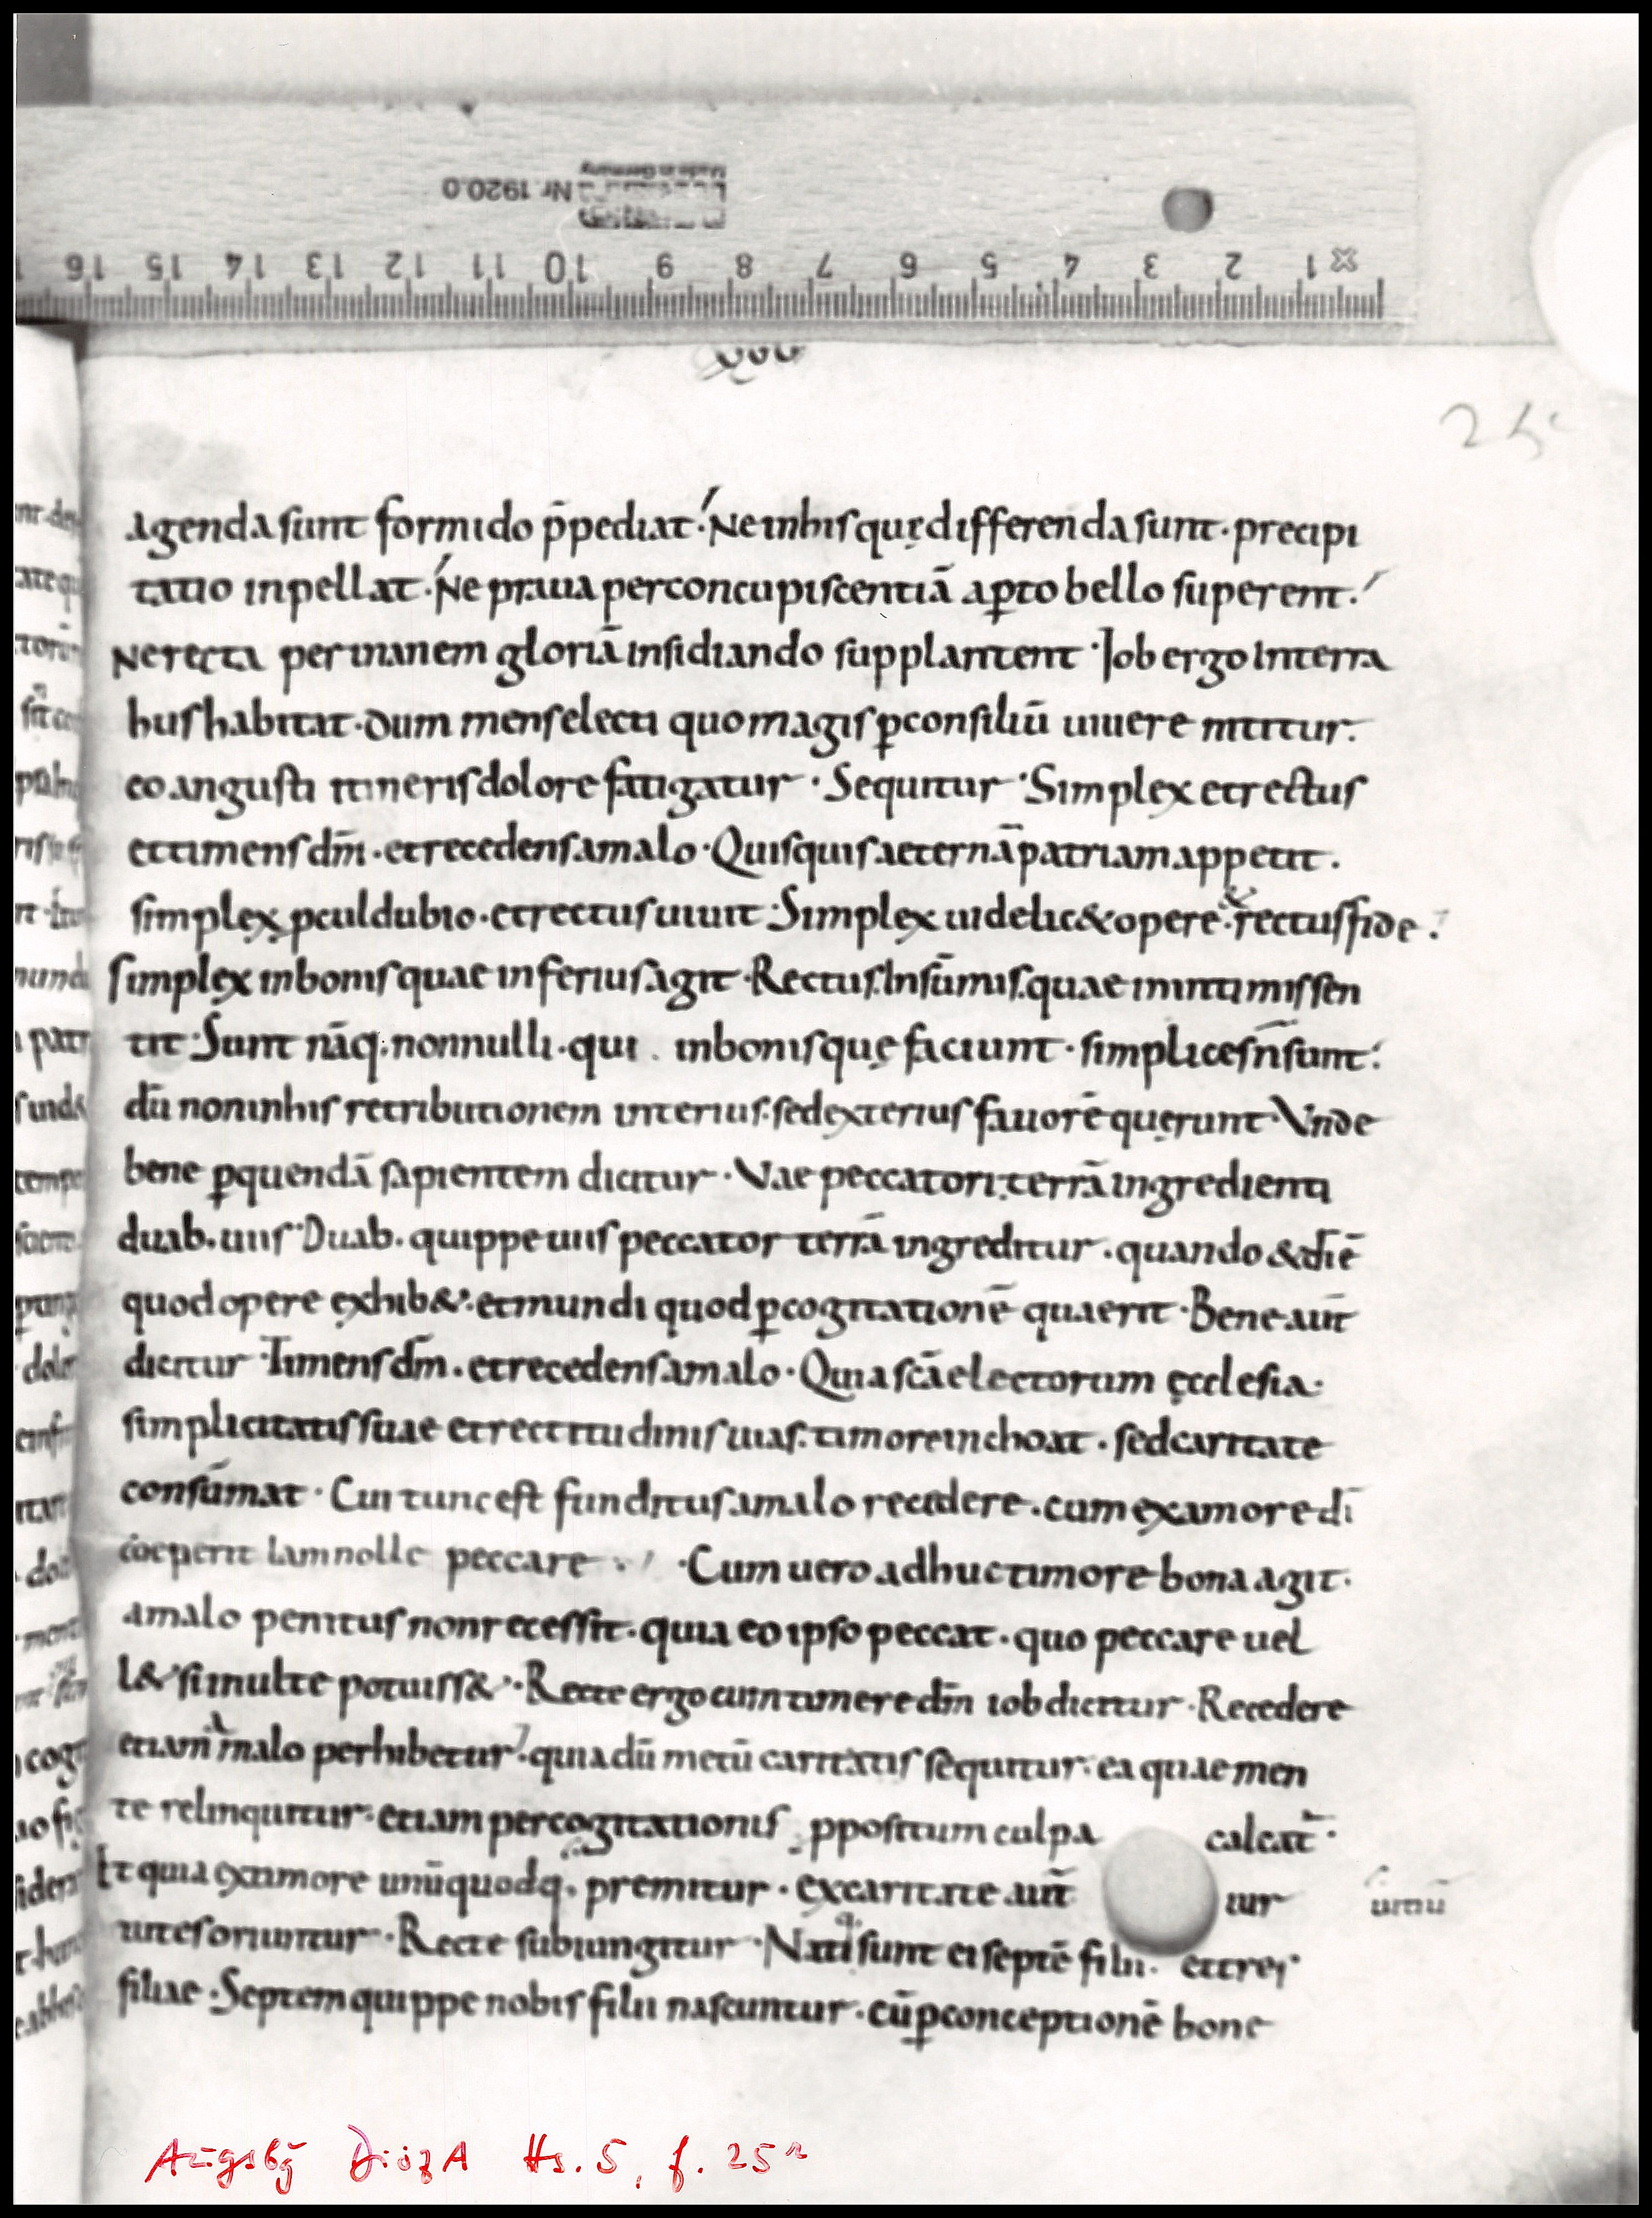 Nr. 1920.0
Made in Germany
16 15 14 13 12 11 10 9 8 7 6 5 4 3 2 1
25
agenda sunt formido p̄pediat. Ne inhis quę differenda sunt. precipi
tatio inpellat. Ne praua perconcupiscentiā aꝑto bello superent.
Ne recta per inanem gloriā insidiando supplantent. Job ergo Interra
hus habitat. dum mens electi quo magis ꝑconsiliū uiuere nititur.
eo angusti itineris dolore fatigatur. Sequitur. Simplex et rectus
et timens dm̄. et recedens amalo. Quisquis aeternā patriam appetit.
simplex pculdubio. et rectus uiuit. Simplex uidelic& opere. & rectus fide.
simplex inbonis quae inferius agit. Rectus. Insūmis. quae inintimis sen
tit. Sunt nāq. nonnulli. qui inbonis quę faciunt. simplices n̄ sunt.
dū non inhis retributionem interius. sed exterius fauorē quęrunt. Vnde
bene ꝑ quendā sapientem dicitur. Vae peccatori. terrā ingredienti
duab. uiis. Duab. quippe uiis peccator terrā ingreditur. quando & dī ē
quod opere exhib&. et mundi quod ꝑcogitationē quaerit. Bene aut̄
dicitur. Timens dm̄. et recedens amalo. Quia scā electorum ęcclesia.
simplicitatis suae et rectitudinis uias. timore inchoat. sed caritate
consūmat. Cui tunc est funditus amalo recedere. cum ex amore dī
coeperit Iam nolle peccare. Cum uero adhuc timore bona agit.
amalo penitus non recessit. quia eo ipso peccat. quo peccare uel
l& si inulte potuiss&. Recte ergo cum timere dm̄ iob dicitur. Recedere
etiam a malo perhibetur. quia dū metū caritatis sequitur. ea quae men
te relinquitur. etiam per cogitationis ppositum culpa calcat̄.
Et quia ex timore unūquodq. premitur. ex caritate aut̄ uir uitiū
utes oriuntur. Recte subiungitur. Natiq. sunt ei septē filii. et tres
filiae. Septem quippe nobis filii nascuntur. cū ꝑ conceptionē bone
Augsbg DiözA Hs. 5, f. 25r